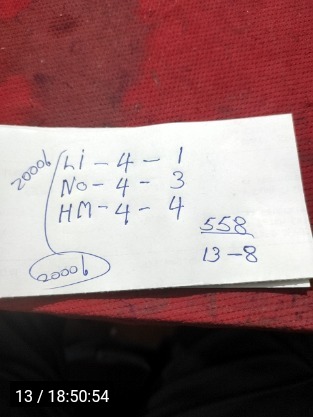 2000b
Li - 4 - 1
No - 4 - 3
HM - 4 - 4
558
13 - 8
2000b
13 / 18:50:54